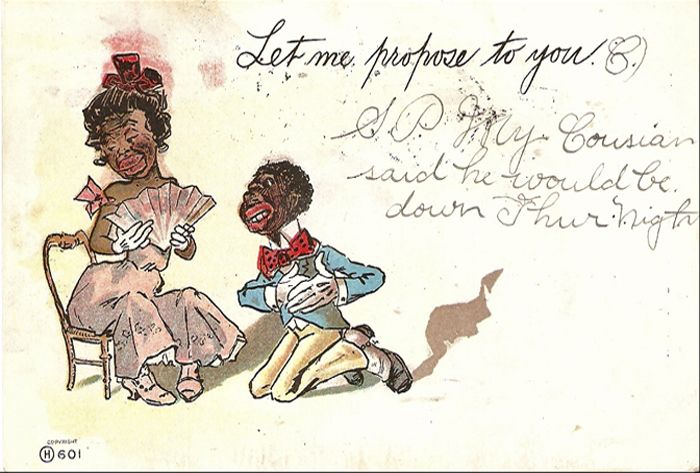 Let me propose to you. C.)
S.P. My Cousian
said he would be
down Thur Nigth
COPYRIGHT
H 601